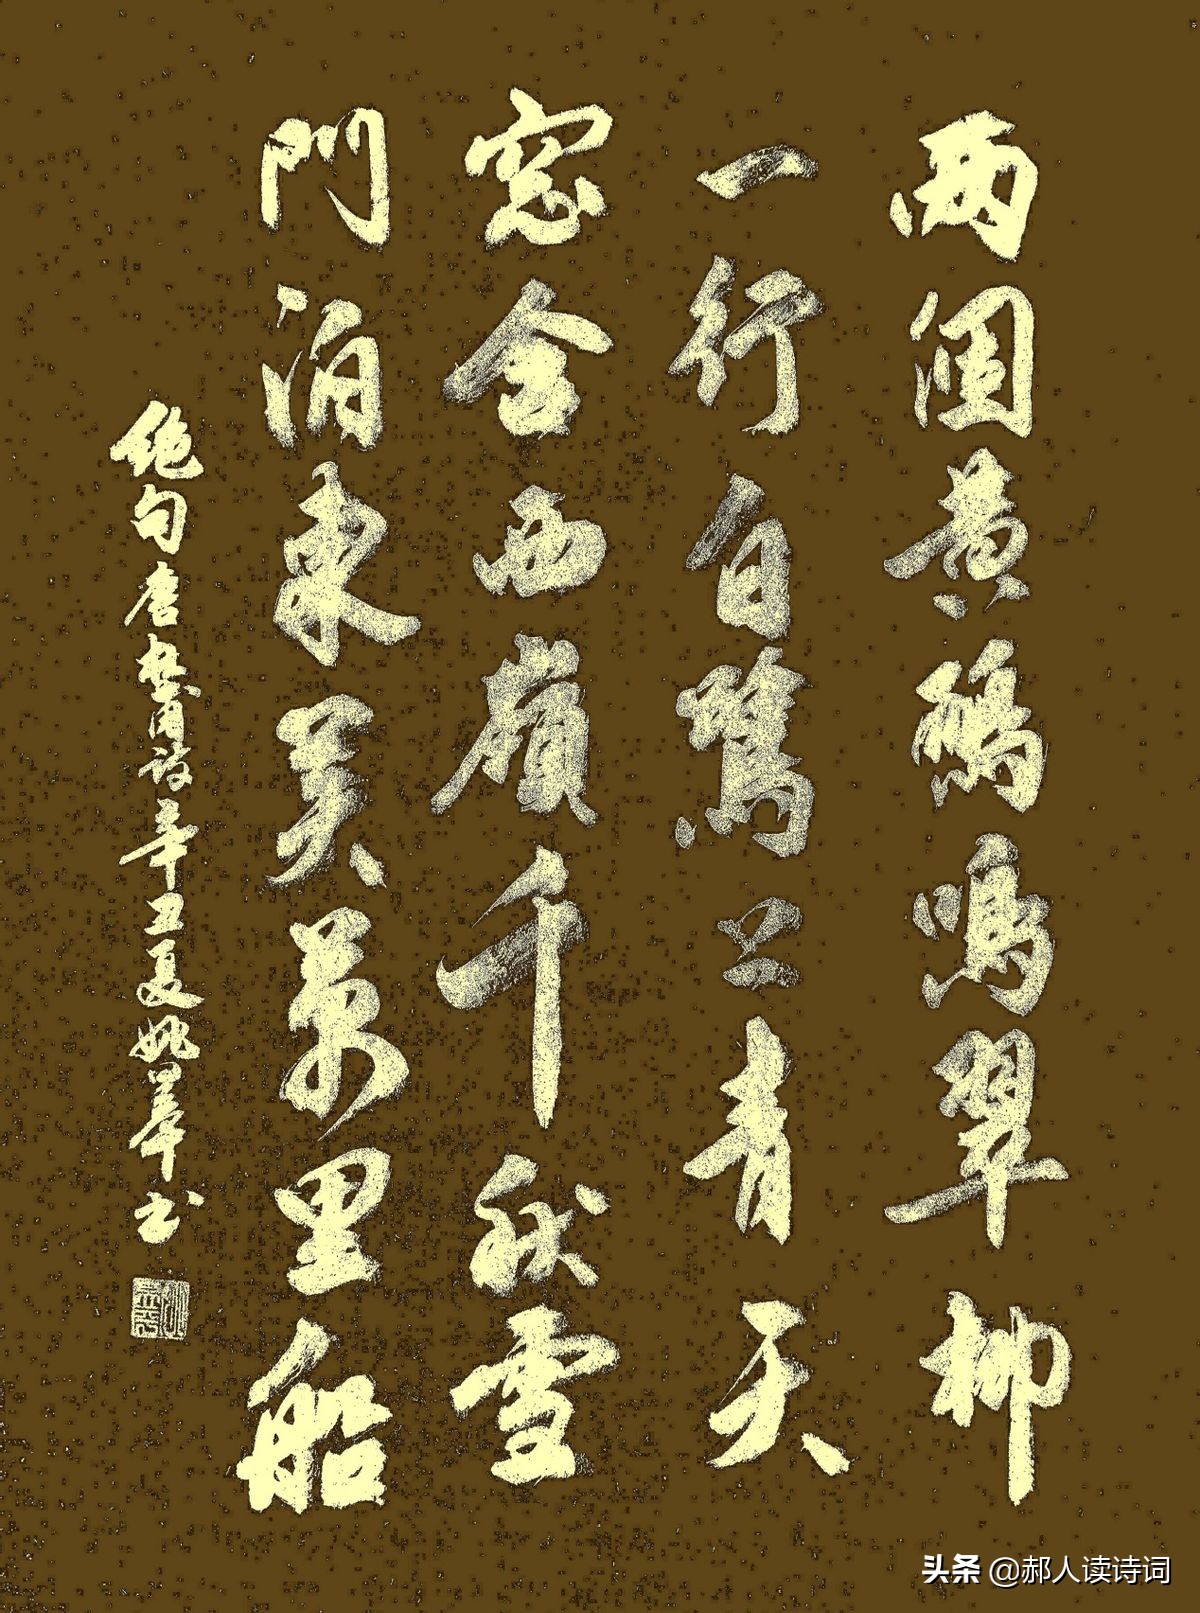 兩個黃鸝鳴翠柳
一行白鷺上青天
窓含西嶺千秋雪
門泊東吳萬里船
绝句唐杜甫诗辛丑夏姚书
头条 @郝人读诗词